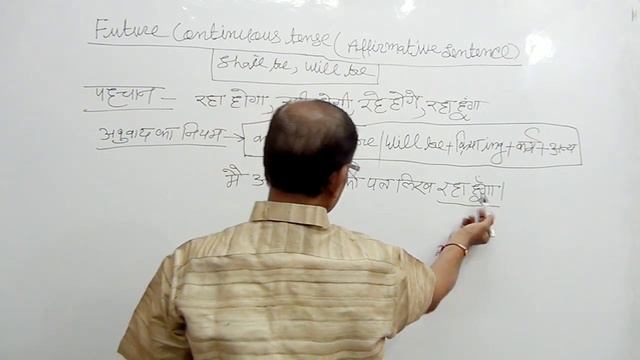 Future Continuous tense (Affirmative Sentence)
Shall be, Will be
पहचान — रहा होगा, होगी, रहे होंगे, रहा हूंगा
अनुवाद का नियम → /Will be + क्रिया ing + कर्म + अन्य
मै को पत्र लिख रहा हूँगा।